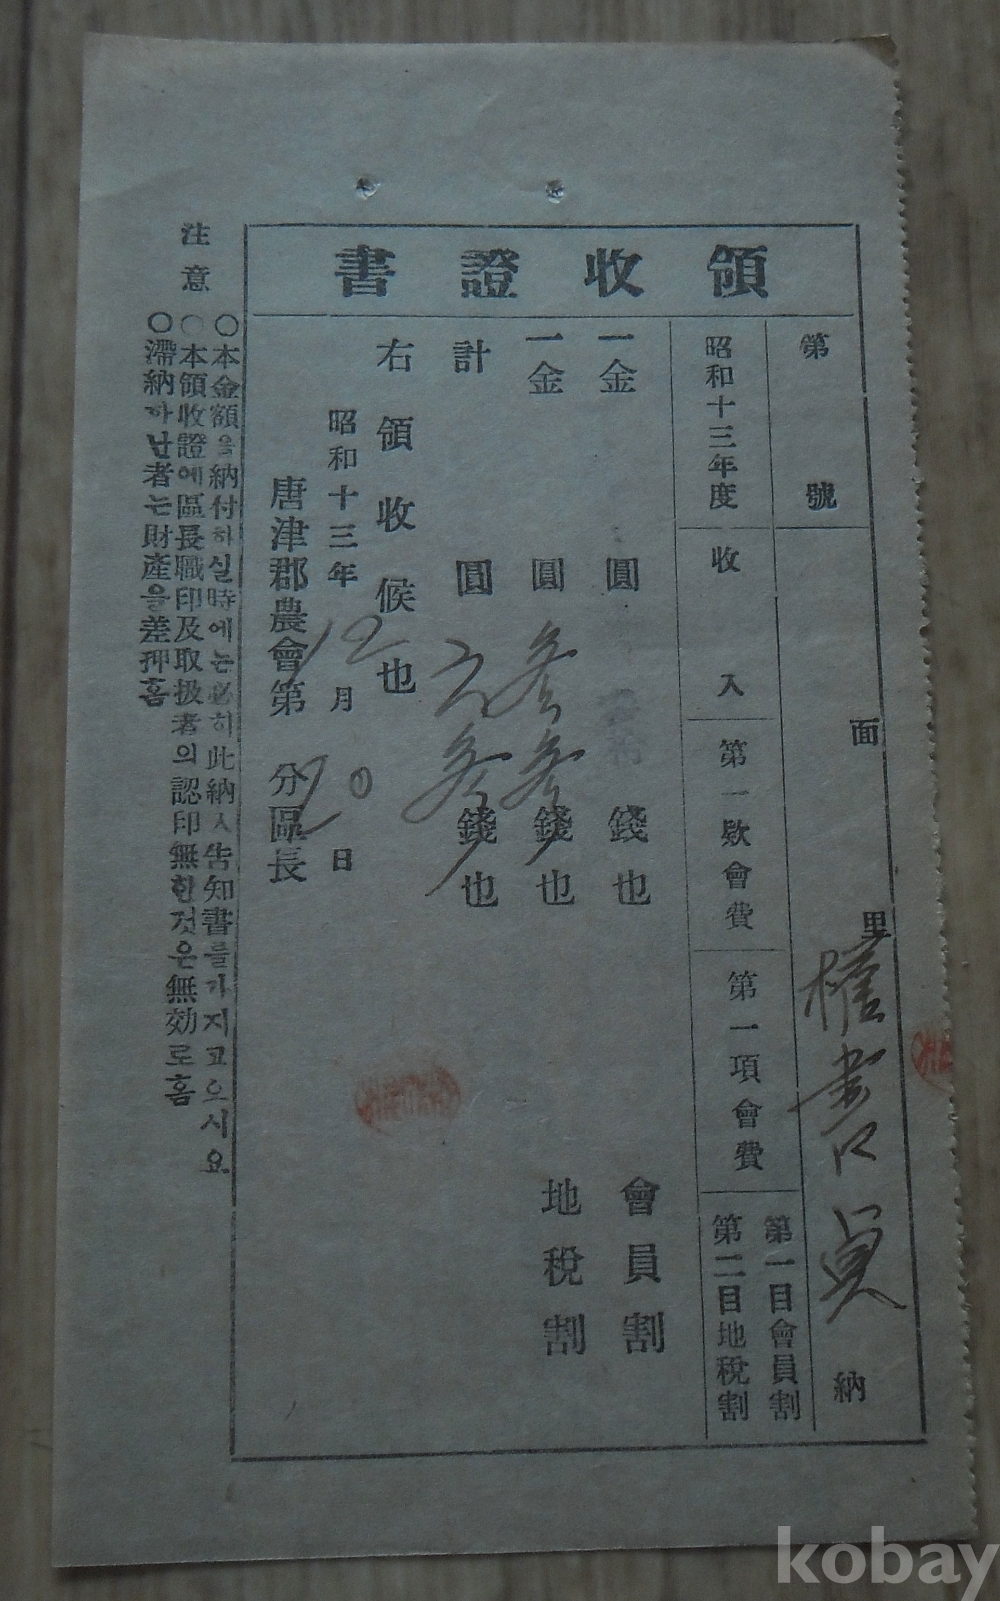 領收證書
第 號
面 里 權 貞 納
昭和十三年度
收入
第一款會費
第一項會費
第一目會員割
第二目地稅割
一金 圓 錢也 會員割
一金 圓 錢也 地稅割
計 圓 錢也
右領收候也
昭和十三年 12 月 日
唐津郡農會第 分區長
注意
○本金額을納付하실時에는必히此納入告知書를가지고오시요
○本領收證에區長職印及取扱者의認印無한것은無効로홈
○滯納하난者는財產을差押홈
kobay